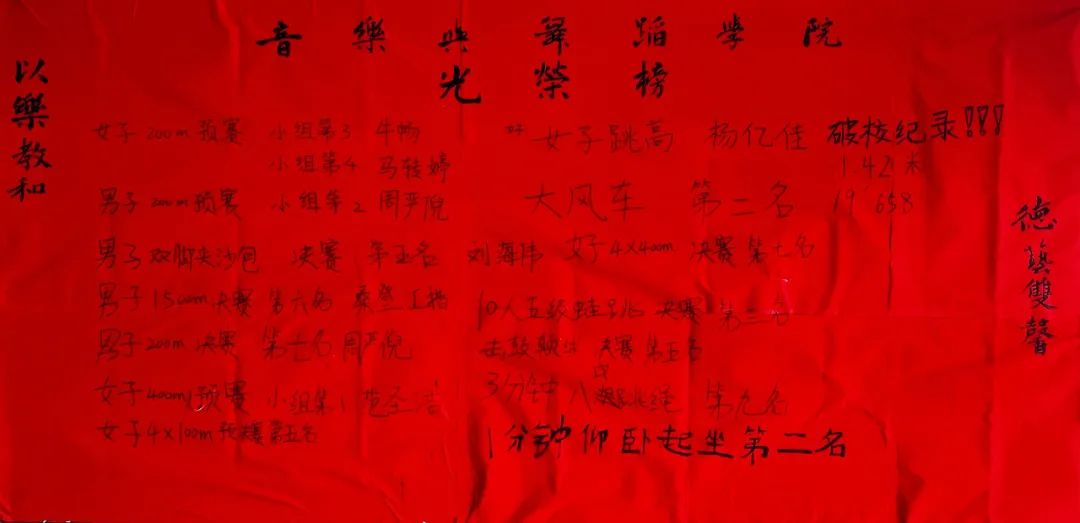 音樂與舞蹈學院
光榮榜
以樂教和
德藝雙馨
女子200m预赛 小组第3 牛畅
小组第4 马转婷
男子200m预赛 小组第2 周严倪
男子双脚夹沙包 决赛 第五名 刘海伟
男子1500m决赛 第六名
男子200m决赛 第七名 周严倪
女子400m预赛 小组第1
女子4×100m预决赛第五名
女子跳高 杨亿佳 破校纪录!!!
1.42米
大风车 第二名 19,658
女子4×400m 决赛第七名
10人五级蛙跳 决赛 第三名
击鼓颠球 决赛第五名
3分钟 八中跳绳 第九名
1分钟仰卧起坐第二名